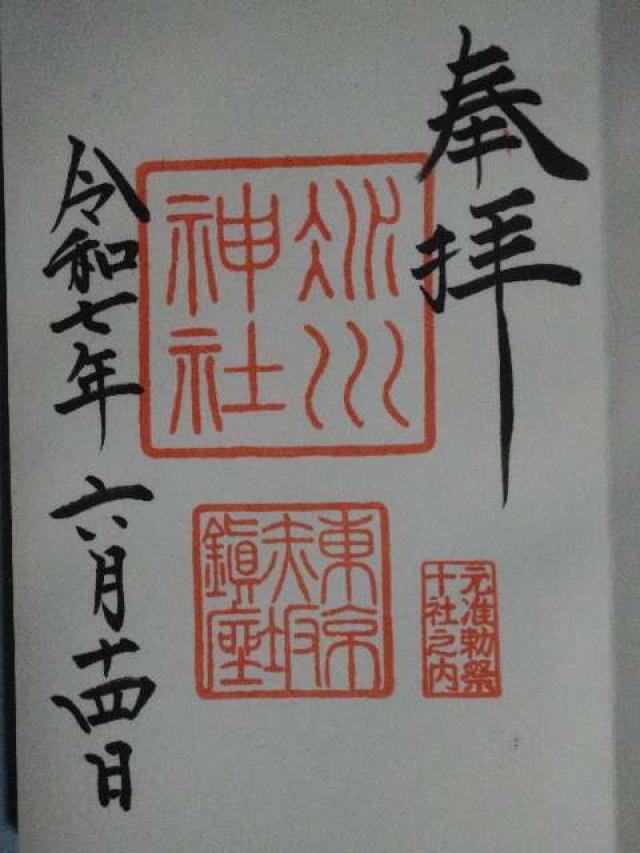 奉拝
氷川
神社
東京
赤坂
鎭座
元准勅祭
十社之内
令和七年 六月十四日